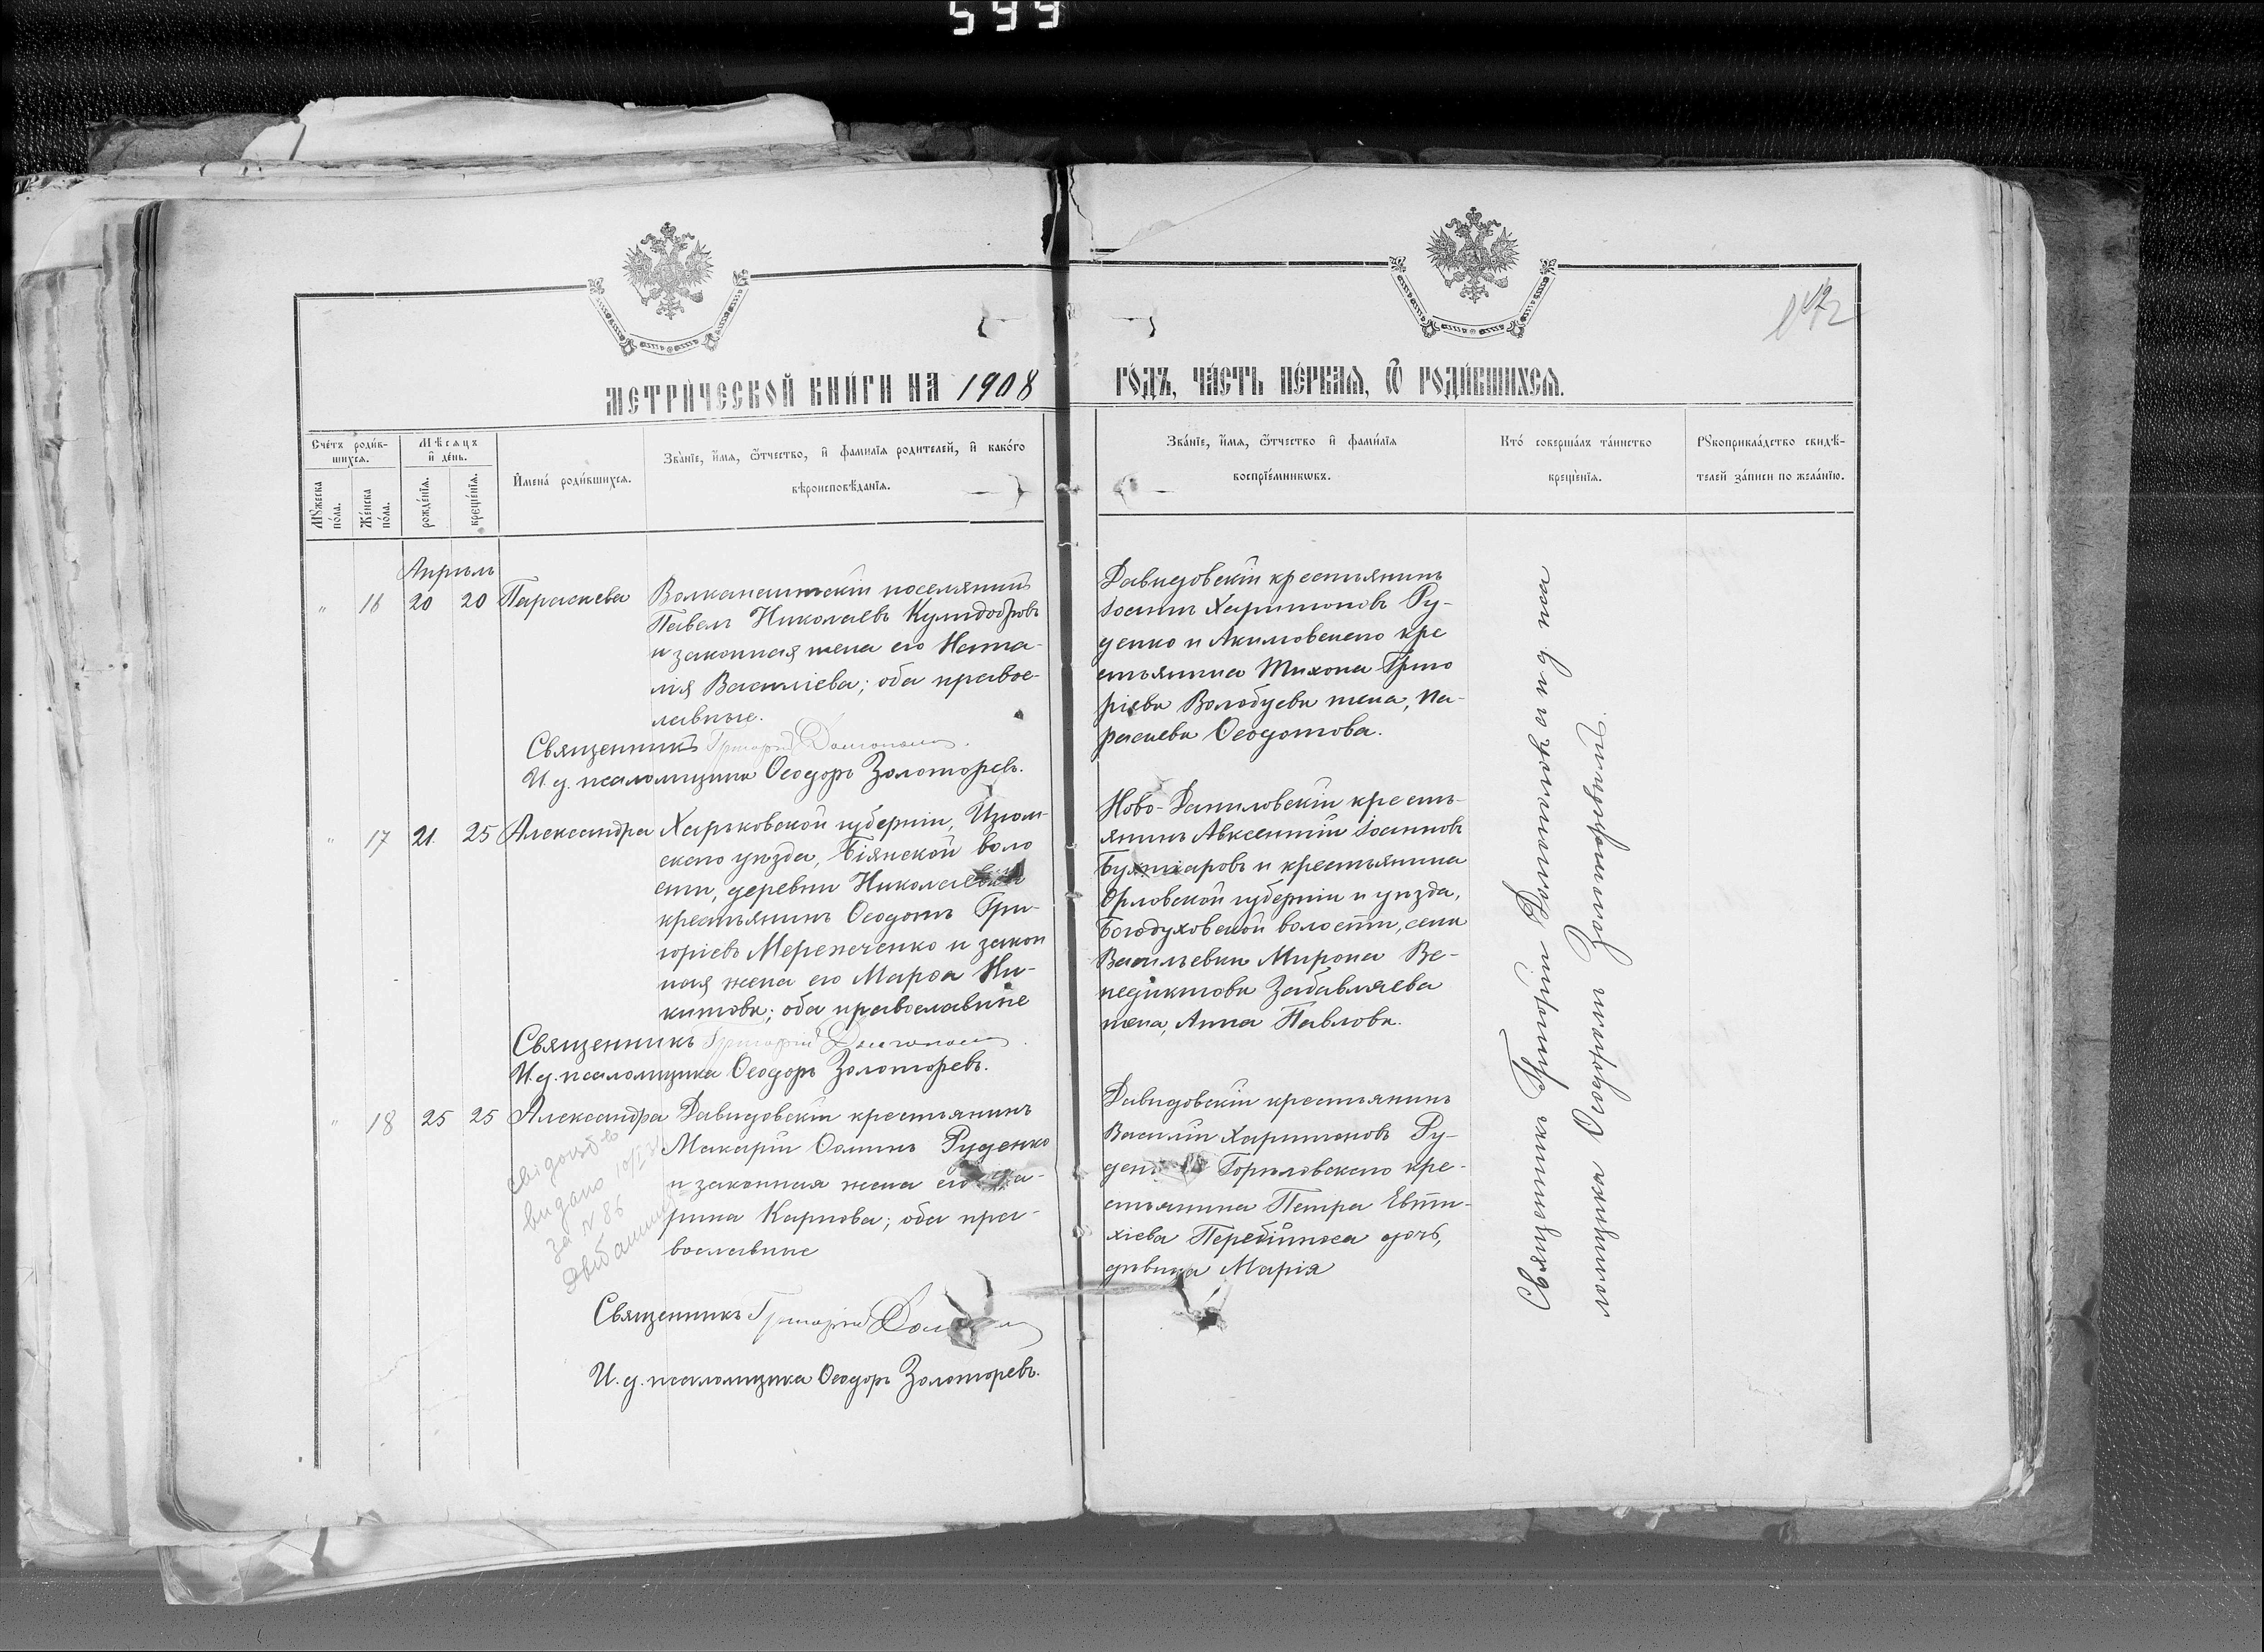 599
142
МЕТРИЧЕСКОЙ КНИГИ НА 1908
ГОДЪ, ЧАСТЬ ПЕРВАЯ, Ѿ РОДИВШИХСЯ.
Счетъ родив-
шихся.
Мѣсяцъ
и день.
Мужеска
пола.
Женска
пола.
рожденія.
крещенія.
Имена родившихся.
Званіе, имя, ѿтчество, и фамилія родителей, и какого
вѣроисповѣданія.
Званіе, имя, ѿтчество и фамилія
воспріемникѡвъ.
Кто совершалъ таинство
крещенія.
Рукоприкладство свидѣ-
телей записи по желанію.
Апрѣль
" 16 20 20 Параскева
Волканештскій поселянинъ
Павелъ Николаевъ
и законная жена его Ната-
лія Василіева; оба правос-
лавные.
Священникъ Григорій
И. д. псаломщика Ѳеодоръ Золоторевъ.
Давидовскій крестьянинъ
Іоаннъ Харитоновъ Ру-
денко и Акимовскаго кре
стьянина Тихона Григо
ріева Волобуева жена, Па-
раскева Ѳеодотова.
" 17 21. 25 Александра
Харьковской губерніи, Изюм-
скаго уѣзда, Біянской воло
сти, деревни Николаевки
крестьянинъ Ѳеодотъ Гри-
горіевъ Мережченко и закон
ная жена его Марѳа Ни-
китова; оба православные
Священникъ Григорій
И. д. псаломщика Ѳеодоръ Золоторевъ.
Ново-Даниловскій кресть-
янинъ Авксентій Іоанновъ
и крестьянина
Орловской губерніи и уѣзда,
Богодуховской волости, села
Васильевки Мирона Ве-
недиктова Забавляева
жена, Анна Павлова.
" 18 25 25 Александра
Давидовскій крестьянинъ
Макарій Ѳоминъ Руденко
и законная жена его
рина Карпова; оба пра-
вославные
видано
за N 86
Священникъ Григорій
И. д. псаломщика Ѳеодоръ Золоторевъ.
Давидовскій крестьянинъ
Василій Харитоновъ Ру-
Горѣловскаго кре-
стьянина Петра Евти-
хіева Перебійноса дочь,
дѣвица Марія
Священникъ Григорій и д. пса
ломщика Ѳеодоръ Золоторевъ.